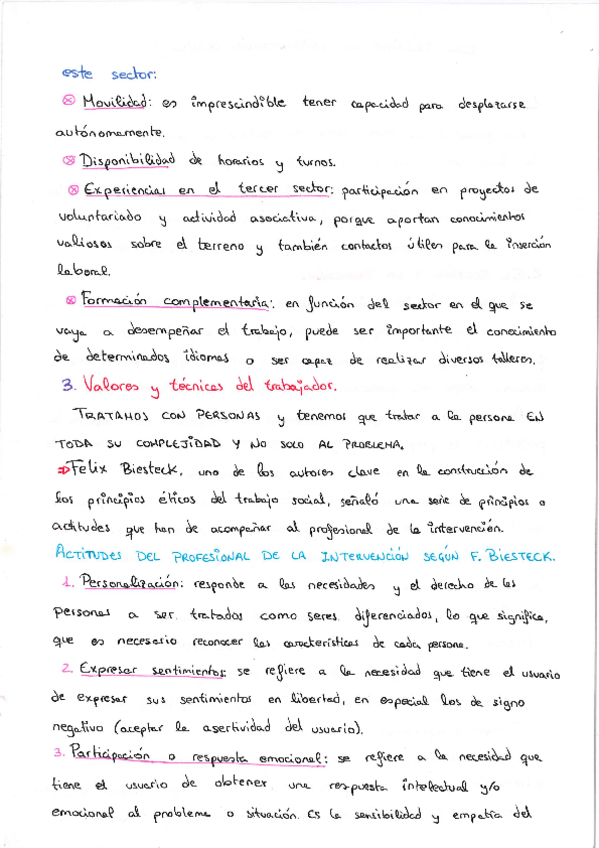 este sector:
⊗ Movilidad: es imprescindible tener capacidad para desplazarse
autónomamente.
⊗ Disponibilidad de horarios y turnos.
⊗ Experiencias en el tercer sector: participación en proyectos de
voluntariado y actividad asociativa, porque aportan conocimientos
valiosos sobre el terreno y también contactos útiles para la inserción
laboral.
⊗ Formación complementaria: en función del sector en el que se
vaya a desempeñar el trabajo, puede ser importante el conocimiento
de determinados idiomas o ser capaz de realizar diversos talleres.
3. Valores y técnicas del trabajador.
TRATAMOS CON PERSONAS y tenemos que tratar a la persona EN
TODA SU COMPLEJIDAD Y NO SOLO AL PROBLEMA.
⇒ Felix Biesteck, uno de los autores clave en la construcción de
los principios éticos del trabajo social, señaló una serie de principios o
actitudes que han de acompañar al profesional de la intervención.
ACTITUDES DEL PROFESIONAL DE LA INTERVENCIÓN SEGÚN F. BIESTECK.
1. Personalización: responde a las necesidades y el derecho de las
personas a ser tratados como seres diferenciados, lo que significa,
que es necesario reconocer las características de cada persona.
2. Expresar sentimientos: se refiere a la necesidad que tiene el usuario
de expresar sus sentimientos en libertad, en especial los de signo
negativo (aceptar la asertividad del usuario).
3. Participación o respuesta emocional: se refiere a la necesidad que
tiene el usuario de obtener una respuesta intelectual y/o
emocional al problema o situación. Es la sensibilidad y empatía del